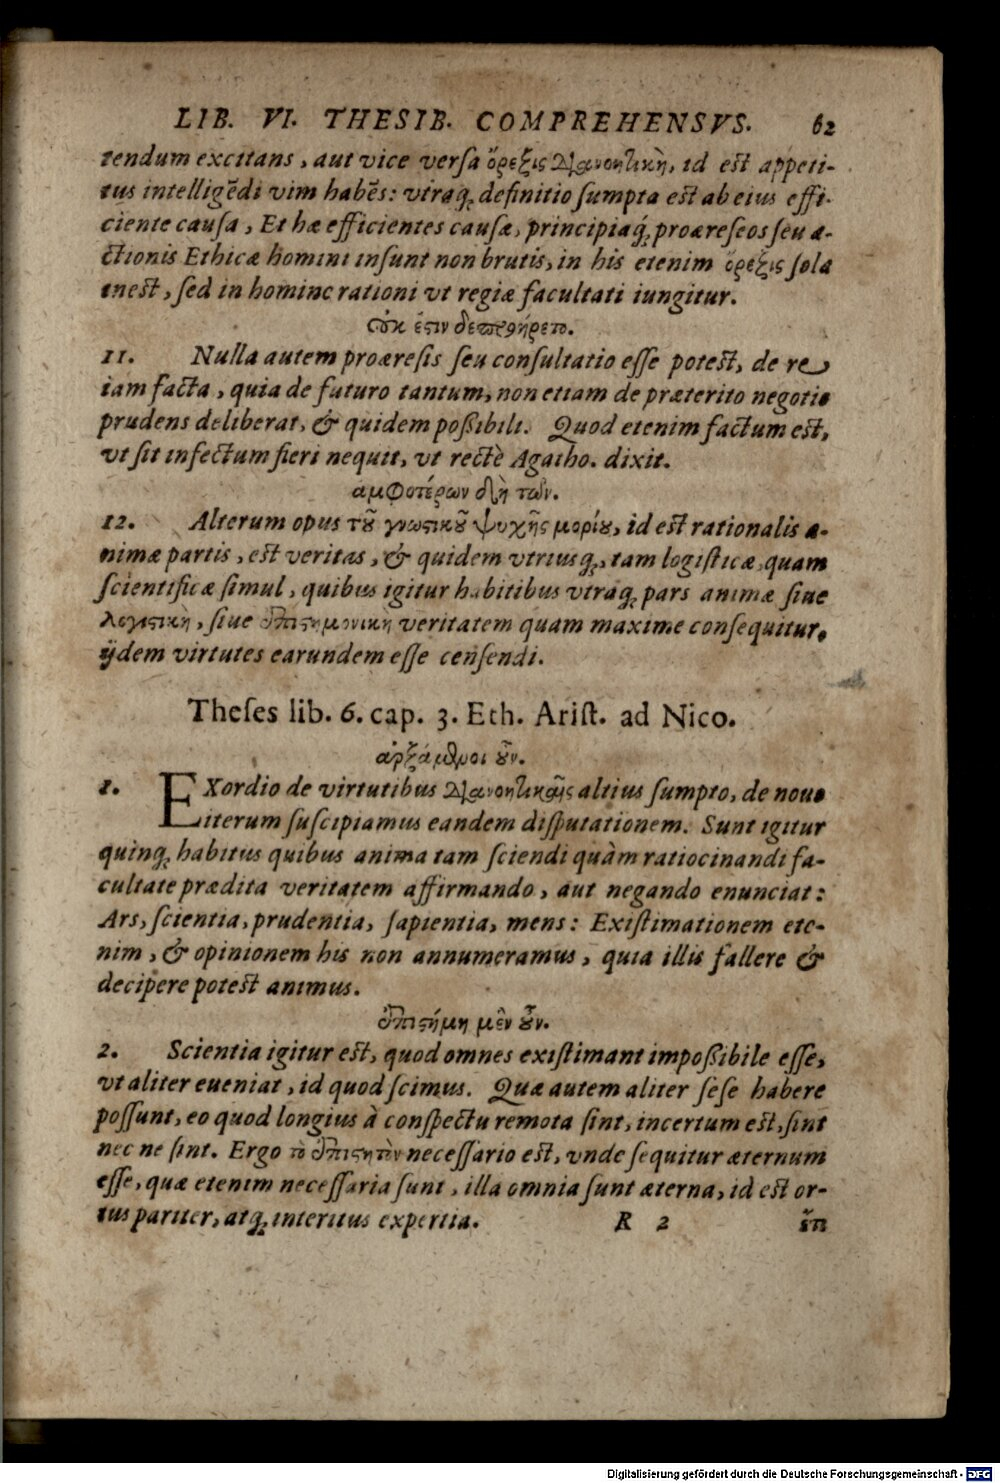 LIB. VI. THESIB. COMPREHENSVS. 62
tendum excitans, aut vice verſa ὄρεξις διανοητικὴ, id eſt appeti-
tus intelligẽdi vim habẽs: vtraq́; definitio ſumpta eſt ab eius effi-
ciente cauſa, Et hæ efficientes cauſæ, principiaq́; proæreſeos ſeu a-
ctionis Ethicæ homini inſunt non brutis, in his etenim ὄρεξις ſola
ineſt, ſed in homine rationi vt regiæ facultati iungitur.
οὐκ ἔστιν δὲ προαίρετο.
11. Nulla autem proæreſis ſeu conſultatio eſſe poteſt, de re
iam facta, quia de futuro tantum, non etiam de præterito negotio
prudens deliberat, & quidem poßibili. Quod etenim factum eſt,
vt ſit infectum fieri nequit, vt rectè Agatho. dixit.
αμφοτέρων δὴ τῶν.
12. Alterum opus τοῦ γνωστικοῦ ψυχῆς μορίου, id eſt rationalis a-
nimæ partis, eſt veritas, & quidem vtriusq́;, tam logiſticæ, quam
ſcientificæ ſimul, quibus igitur habitibus vtraq́; pars animæ ſiue
λογιστικὴ, ſiue ἐπιστημονικη veritatem quam maxime conſequitur,
ijdem virtutes earundem eſſe cenſendi.
Theſes lib. 6. cap. 3. Eth. Ariſt. ad Nico.
αρξάμενοι οὖν.
1. EXordio de virtutibus διανοητικαῖς altius ſumpto, de nouo
iterum ſuſcipiamus eandem diſputationem. Sunt igitur
quinq́; habitus quibus anima tam ſciendi quàm ratiocinandi fa-
cultate prædita veritatem affirmando, aut negando enunciat:
Ars, ſcientia, prudentia, ſapientia, mens: Exiſtimationem ete-
nim, & opinionem his non annumeramus, quia illis fallere &
decipere poteſt animus.
ἐπιστήμη μὲν οὖν.
2. Scientia igitur eſt, quod omnes exiſtimant impoßibile eſſe,
vt aliter eueniat, id quod ſcimus. Quæ autem aliter ſeſe habere
poſſunt, eo quod longius à conſpectu remota ſint, incertum eſt, ſint
nec ne ſint. Ergo τὸ ἐπιστητὸν neceſſario eſt, vnde ſequitur æternum
eſſe, quæ etenim neceſſaria ſunt, illa omnia ſunt æterna, id eſt or-
tus pariter, atq́; interitus expertia. R 2 ἔτι
Digitalisierung gefördert durch die Deutsche Forschungsgemeinschaft - DFG